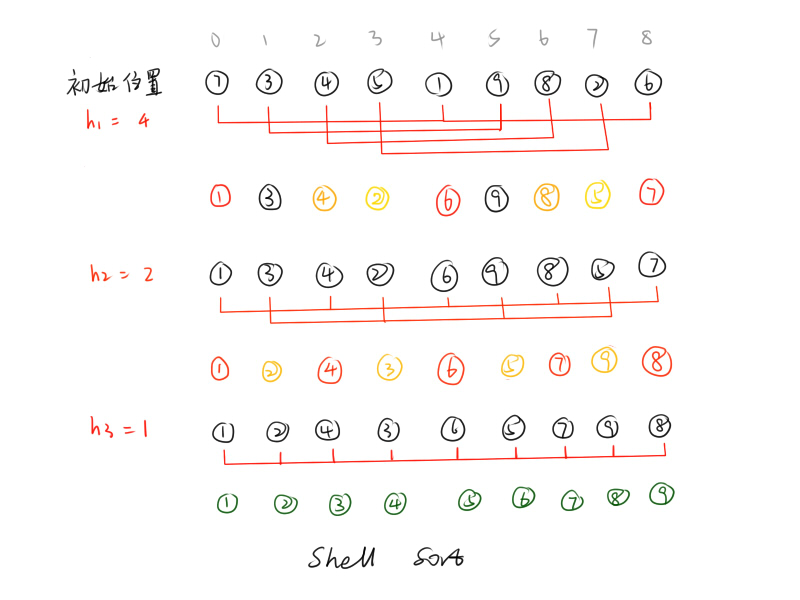 0 1 2 3 4 5 6 7 8
初始位置 7 3 4 5 1 9 8 2 6
h1 = 4
1 3 4 2 6 9 8 5 7
h2 = 2 1 3 4 2 6 9 8 5 7
1 2 4 3 6 5 7 9 8
h3 = 1 1 2 4 3 6 5 7 9 8
1 2 3 4 5 6 7 8 9
Shell Sort